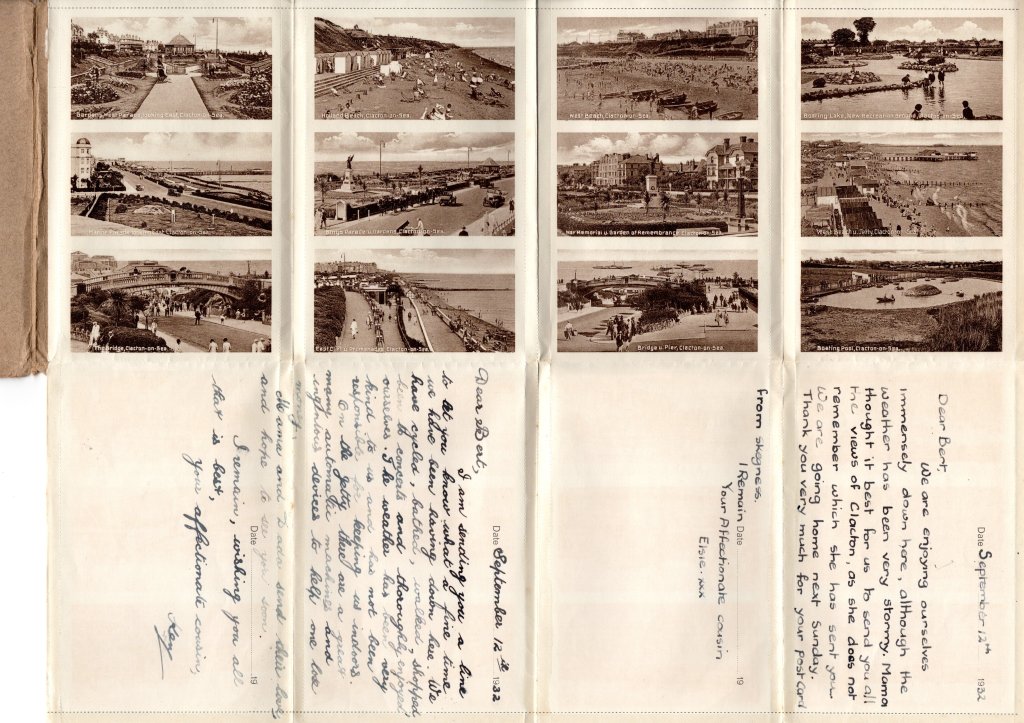 Gardens, West Parade, looking East, Clacton-on-Sea.
Holland Beach, Clacton-on-Sea.
West Beach, Clacton-on-Sea.
Boating Lake, New Recreation Ground, Clacton-on-Sea.
Marine Parade looking East, Clacton-on-Sea.
Kings Parade & Gardens, Clacton-on-Sea.
War Memorial & Garden of Remembrance, Clacton-on-Sea.
West Beach & Jetty, Clacton
The Bridge, Clacton-on-Sea.
East Cliff & Promenade, Clacton-on-Sea.
Bridge & Pier, Clacton-on-Sea.
Boating Pool, Clacton-on-Sea.
Date September 12th 1932
Dear Bert
We are enjoying ourselves
immensely down here, although the
weather has been very stormy. Mama
thought it best for us to send you all
the views of Clacton, as she does not
remember which she has sent you.
We are going home next Sunday.
Thank you very much for your postcard
Date 19
from Skegness.
I Remain
Your Affectionate cousin
Elsie. xxx
Date September 12th 1932
Dear Bert,
I am sending you a line
to let you know what a fine time
we have been having down here. We
have cycled, bathed, walked, shopped
been to concerts and thoroughly enjoyed
ourselves. The weather has been very
kind to us and has not been
responsible for keeping us indoors.
On the jetty there are a great
many automatic machines and
ingenious devices to help one lose
money.
Date 19
Mama and Dada send their love,
and hope to see you soon.
I remain, wishing you all
that is best,
your affectionate cousin,